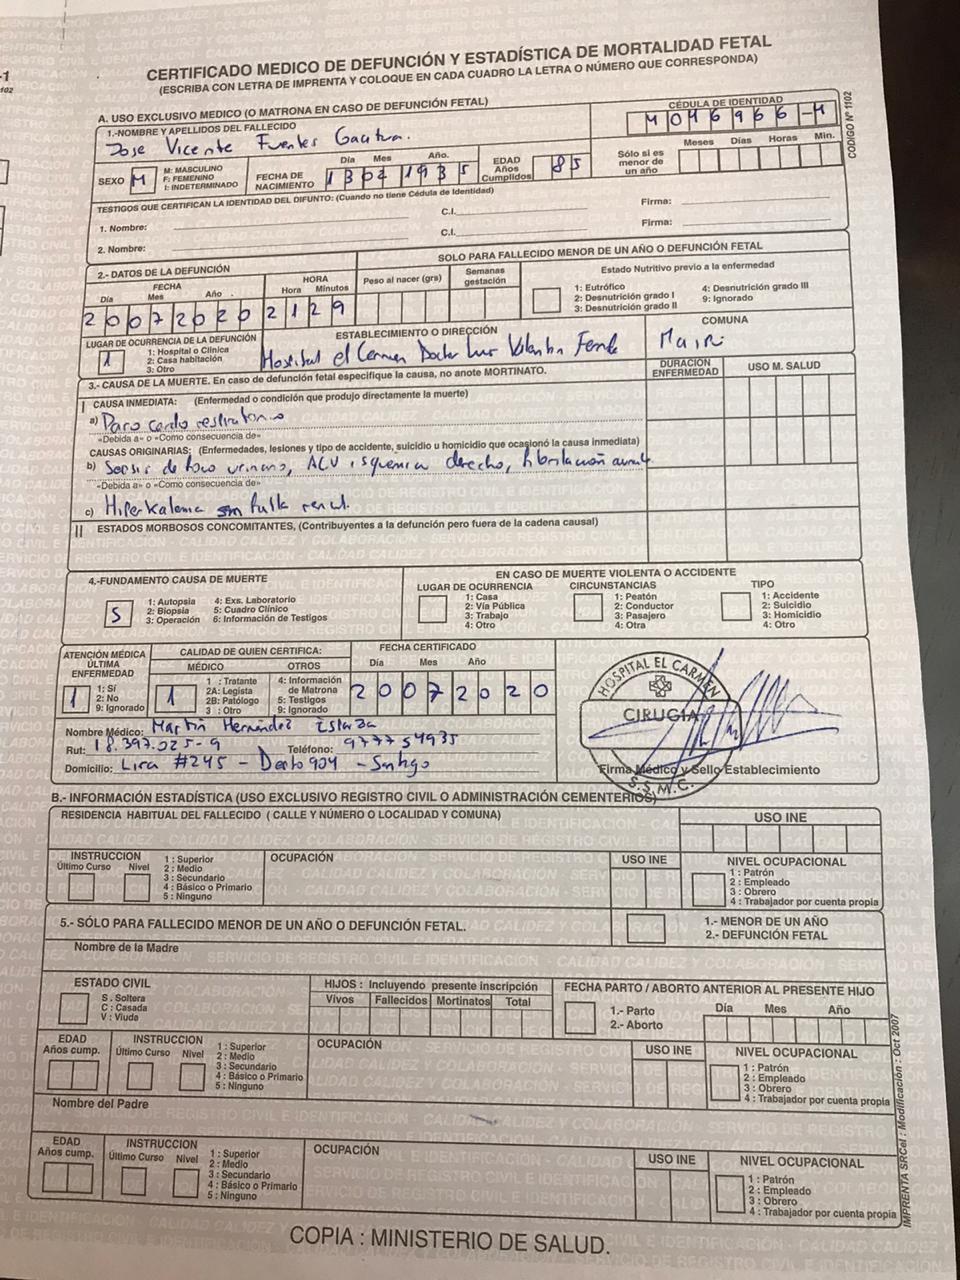 CERTIFICADO MEDICO DE DEFUNCIÓN Y ESTADÍSTICA DE MORTALIDAD FETAL
(ESCRIBA CON LETRA DE IMPRENTA Y COLOQUE EN CADA CUADRO LA LETRA O NÚMERO QUE CORRESPONDA)
A. USO EXCLUSIVO MEDICO (O MATRONA EN CASO DE DEFUNCIÓN FETAL)
CÉDULA DE IDENTIDAD
CODIGO Nº 1102
1.-NOMBRE Y APELLIDOS DEL FALLECIDO
Jose Vicente Fuentes
SEXO M
M: MASCULINO
F: FEMENINO
I: INDETERMINADO
FECHA DE NACIMIENTO
Día Mes Año.
13 07 1935
EDAD Años Cumplidos 85
Sólo si es menor de un año
Meses Días Horas Min.
TESTIGOS QUE CERTIFICAN LA IDENTIDAD DEL DIFUNTO: (Cuando no tiene Cédula de Identidad)
1. Nombre: C.I. Firma:
2. Nombre: C.I. Firma:
2.- DATOS DE LA DEFUNCIÓN
SOLO PARA FALLECIDO MENOR DE UN AÑO O DEFUNCIÓN FETAL
FECHA HORA
Día Mes Año Hora Minutos
20 07 2020 21 29
Peso al nacer (grs)
Semanas gestación
Estado Nutritivo previo a la enfermedad
1: Eutrófico 4: Desnutrición grado III
2: Desnutrición grado I 9: Ignorado
3: Desnutrición grado II
LUGAR DE OCURRENCIA DE LA DEFUNCIÓN
1
1: Hospital o Clínica
2: Casa habitación
3: Otro
ESTABLECIMIENTO O DIRECCIÓN
Hospital el Carmen Doctor Luis Valentin
COMUNA
Maipu
3.- CAUSA DE LA MUERTE. En caso de defunción fetal especifique la causa, no anote MORTINATO.
DURACIÓN ENFERMEDAD
USO M. SALUD
I CAUSA INMEDIATA: (Enfermedad o condición que produjo directamente la muerte)
a) Paro cardio respiratorio
«Debida a» o «Como consecuencia de»
CAUSAS ORIGINARIAS: (Enfermedades, lesiones y tipo de accidente, suicidio u homicidio que ocasionó la causa inmediata)
b) Sepsis de foco urinario, ACV isquemico derecho, fibrilacion
«Debida a» o «Como consecuencia de»
c) Hiperkalemia sin falla renal.
II ESTADOS MORBOSOS CONCOMITANTES, (Contribuyentes a la defunción pero fuera de la cadena causal)
4.-FUNDAMENTO CAUSA DE MUERTE
5
1: Autopsia 4: Exs. Laboratorio
2: Biopsia 5: Cuadro Clínico
3: Operación 6: Información de Testigos
EN CASO DE MUERTE VIOLENTA O ACCIDENTE
LUGAR DE OCURRENCIA CIRCUNSTANCIAS TIPO
1: Casa 1: Peatón 1: Accidente
2: Vía Pública 2: Conductor 2: Suicidio
3: Trabajo 3: Pasajero 3: Homicidio
4: Otro 4: Otra 4: Otro
ATENCIÓN MÉDICA ÚLTIMA ENFERMEDAD
1
1: Sí
2: No
9: Ignorado
CALIDAD DE QUIEN CERTIFICA:
MÉDICO OTROS
1
1 : Tratante 4: Información de Matrona
2A: Legista
2B: Patólogo 5: Testigos
3 : Otro 9: Ignorado
FECHA CERTIFICADO
Día Mes Año
20 07 2020
HOSPITAL EL CARMEN
CIRUGÍA
S.S.M.C.
Nombre Médico: Martin Hernández
Rut: 18.397.025-9 Teléfono: 977754935
Domicilio: Lira #245 - Depto 904 - Santiago
Firma Médico y Sello Establecimiento
B.- INFORMACIÓN ESTADÍSTICA (USO EXCLUSIVO REGISTRO CIVIL O ADMINISTRACIÓN CEMENTERIOS)
RESIDENCIA HABITUAL DEL FALLECIDO ( CALLE Y NÚMERO O LOCALIDAD Y COMUNA)
USO INE
INSTRUCCION
Último Curso Nivel
1 : Superior
2 : Medio
3 : Secundario
4 : Básico o Primario
5 : Ninguno
OCUPACIÓN
USO INE
NIVEL OCUPACIONAL
1 : Patrón
2 : Empleado
3 : Obrero
4 : Trabajador por cuenta propia
5.- SÓLO PARA FALLECIDO MENOR DE UN AÑO O DEFUNCIÓN FETAL.
1.- MENOR DE UN AÑO
2.- DEFUNCIÓN FETAL
Nombre de la Madre
ESTADO CIVIL
S . Soltera
C : Casada
V : Viuda
HIJOS : Incluyendo presente inscripción
Vivos Fallecidos Mortinatos Total
FECHA PARTO / ABORTO ANTERIOR AL PRESENTE HIJO
1.- Parto
2.- Aborto
Día Mes Año
EDAD
Años cump.
INSTRUCCION
Último Curso Nivel
1 : Superior
2 : Medio
3 : Secundario
4 : Básico o Primario
5 : Ninguno
OCUPACIÓN
USO INE
NIVEL OCUPACIONAL
1 : Patrón
2 : Empleado
3 : Obrero
4 : Trabajador por cuenta propia
Nombre del Padre
EDAD
Años cump.
INSTRUCCION
Último Curso Nivel
1 : Superior
2 : Medio
3 : Secundario
4 : Básico o Primario
5 : Ninguno
OCUPACIÓN
USO INE
NIVEL OCUPACIONAL
1 : Patrón
2 : Empleado
3 : Obrero
4 : Trabajador por cuenta propia
IMPRENTA SRCeI : Modificación : Oct 2007
COPIA : MINISTERIO DE SALUD.